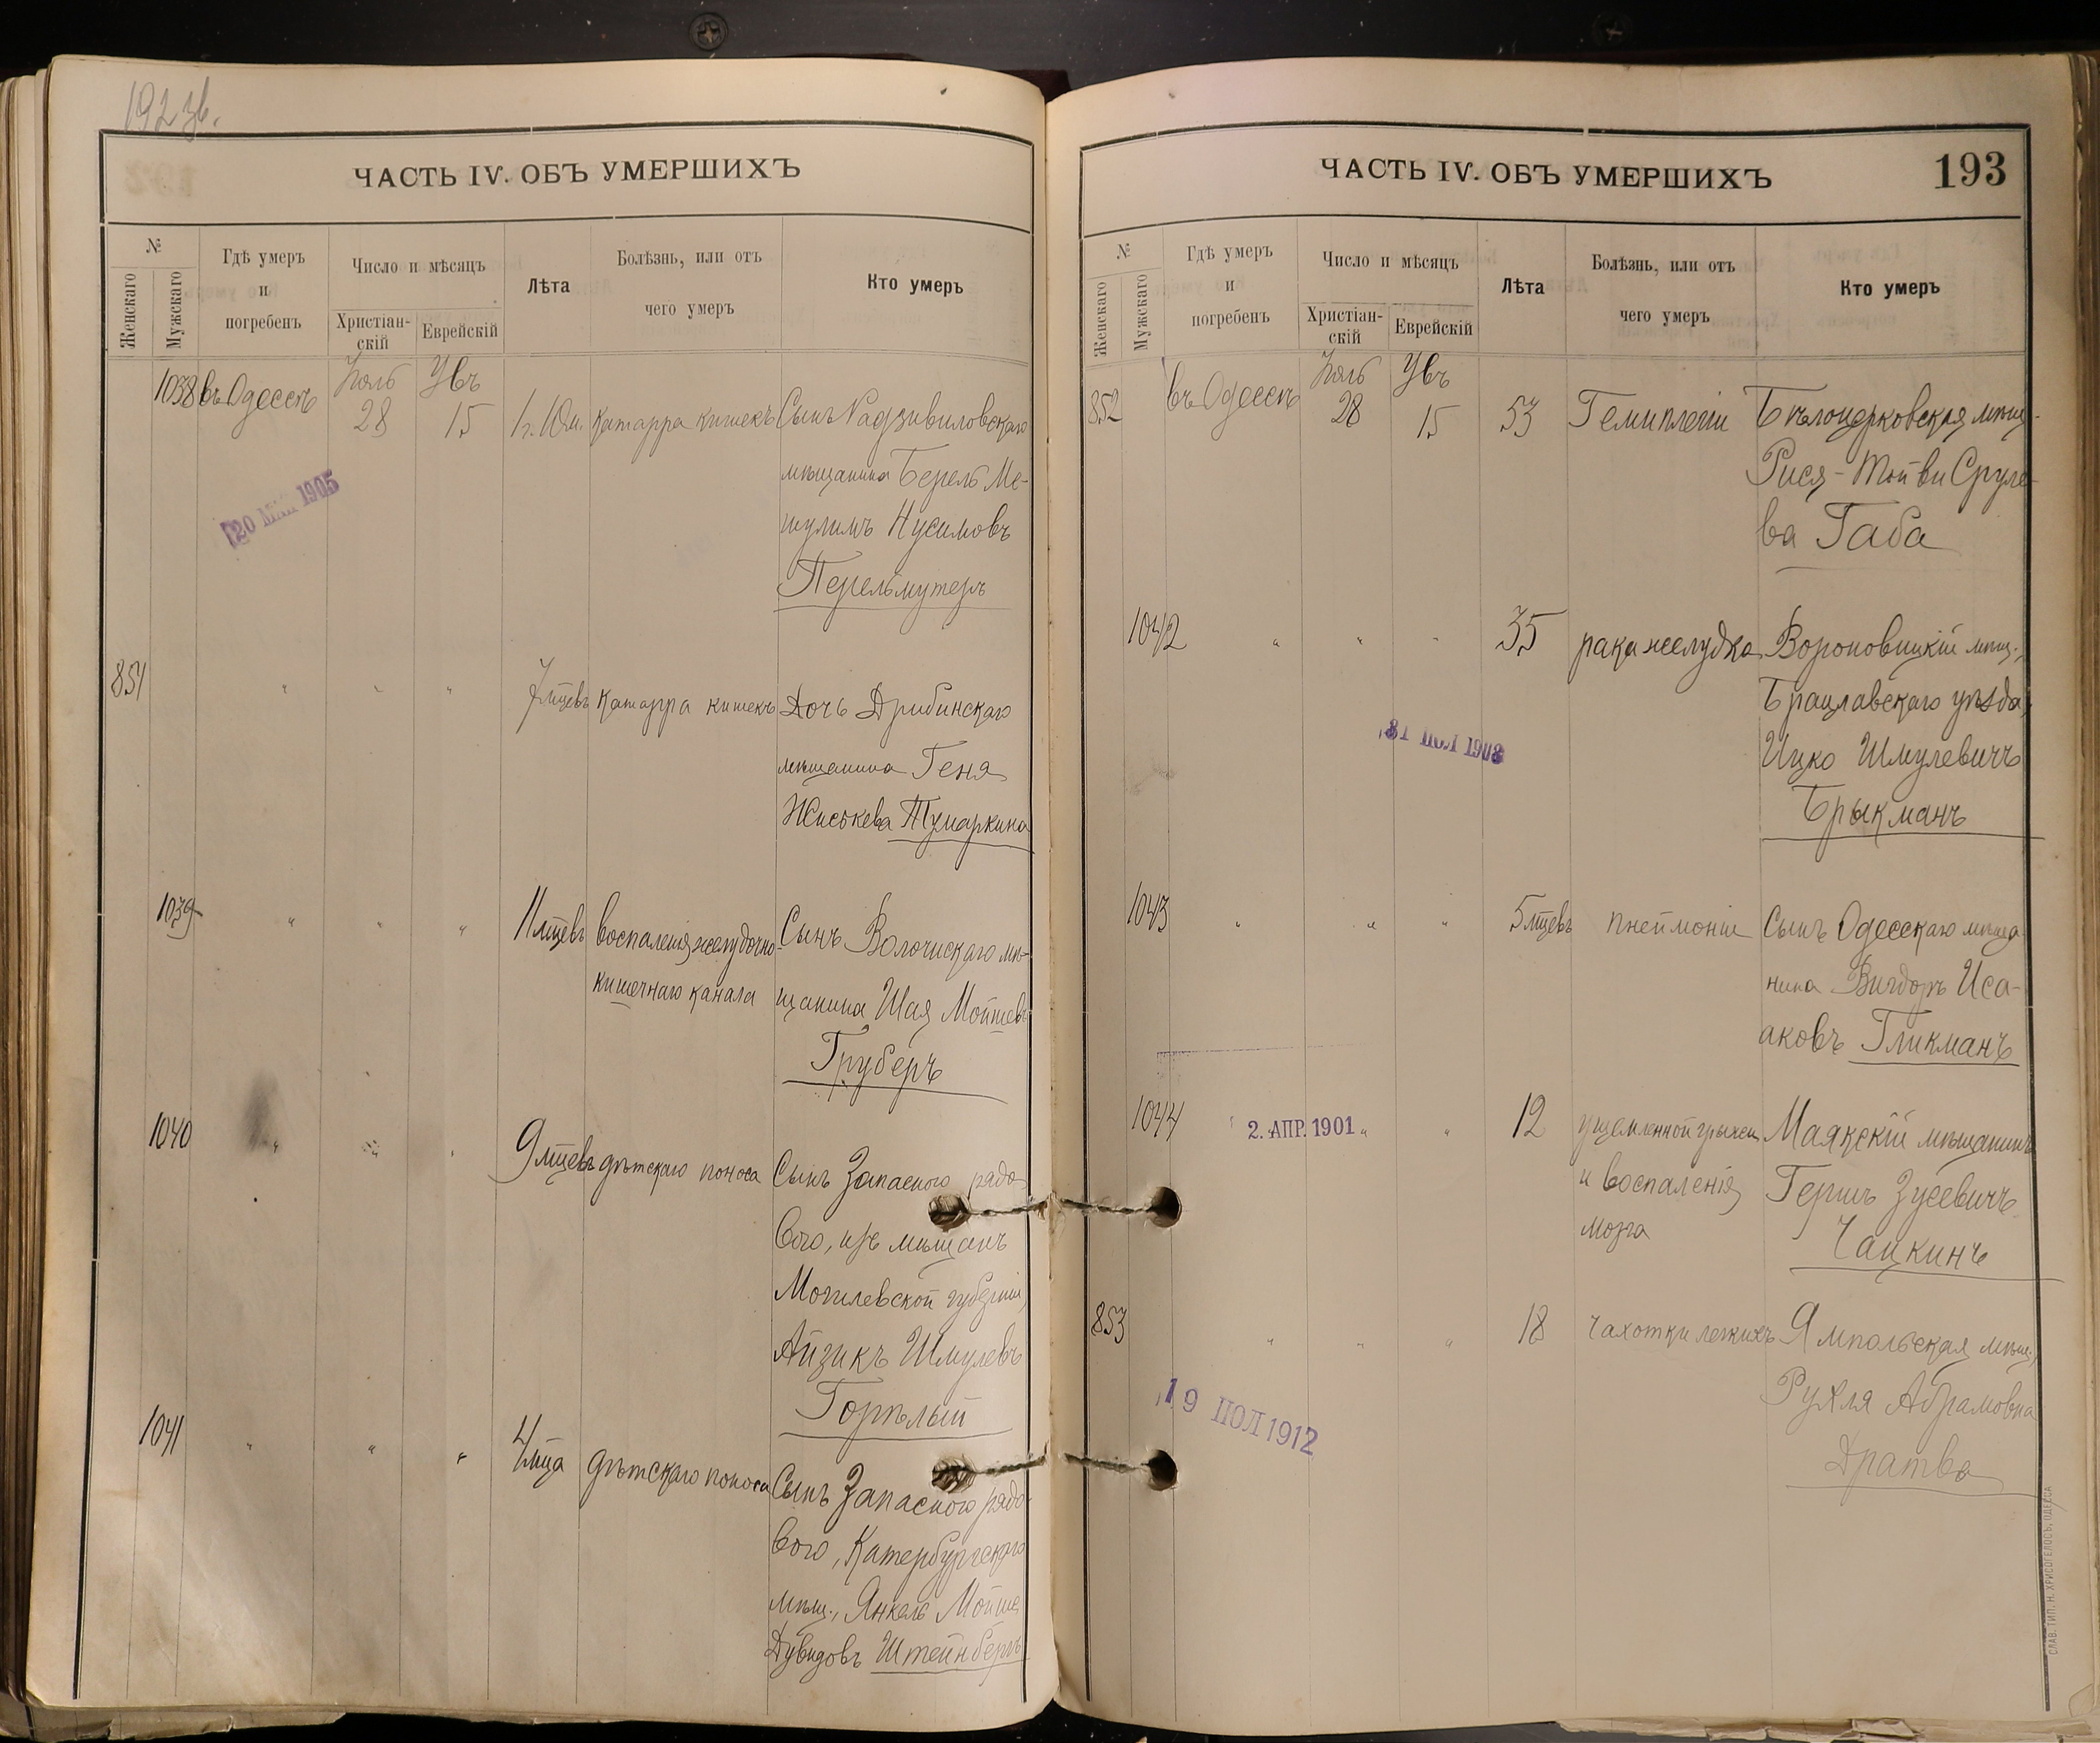 192 зв.
ЧАСТЬ IV. ОБЪ УМЕРШИХЪ
№
Женскаго
Мужскаго
Гдѣ умеръ
и
погребенъ
Число и мѣсяцъ
Христіан-
скій
Еврейскій
Лѣта
Болѣзнь, или отъ
чего умеръ
Кто умеръ
1038 въ Одессѣ Іюль 28 Увъ 15 1 г. 10 м. катарра кишекъ Сынъ Радзивиловскаго
мѣщанина Берель Ме-
шулимъ Нусимовъ
Перельмутеръ
20 МАЯ 1905
851 " " " 7 мцевъ катарра кишекъ Дочь Дрибинскаго
мѣщанина Геня
Хиськева Тумаркина
1039 " " " 11 мцевъ воспаленія желудочно- Сынъ Волочискаго мѣ-
кишечнаго канала щанина Шая Мойшевъ
Груберъ
1040 " " " 9 мцевъ дѣтскаго поноса Сынъ Запасного рядо-
вого, изъ мѣщанъ
Могилевской губерніи,
Айзикъ Шмулевъ
Горѣлый
1041 " " " 4 мца дѣтскаго поноса Сынъ Запасного рядо-
вого, Катербургскаго
мѣщ., Янкель Мойше
Дувидовъ Штейнбергъ
ЧАСТЬ IV. ОБЪ УМЕРШИХЪ
193
№
Женскаго
Мужскаго
Гдѣ умеръ
и
погребенъ
Число и мѣсяцъ
Христіан-
скій
Еврейскій
Лѣта
Болѣзнь, или отъ
чего умеръ
Кто умеръ
852 въ Одессѣ Іюль 28 Увъ 15 53 Гемиплегіи Бѣлоцерковская мѣщ.
Рися-Тойви Сруле-
ва Габа
1042 " " " 35 рака желудка Вороновицкій мѣщ.,
Брацлавскаго уѣзда,
Ицко Шмулевичъ
Брыкманъ
1043 " " " 5 мцевъ пнеймоніи Сынъ Одесскаго мѣща-
нина Вигдоръ Иса-
аковъ Гликманъ
1044 " 2. АПР. 1901 " " 12 ущемленной грыжи Маякскій мѣщанинъ
и воспаленія Гершъ Зусевичъ
мозга Чацкинъ
853 " " " 18 Чахотки легкихъ Ямпольская мѣщ.,
Рухля Абрамовна
Дратва
19 ІЮЛ 1912
СЛАВ. ТИП. Н. ХРИСОГЕЛОСЪ, ОДЕССА